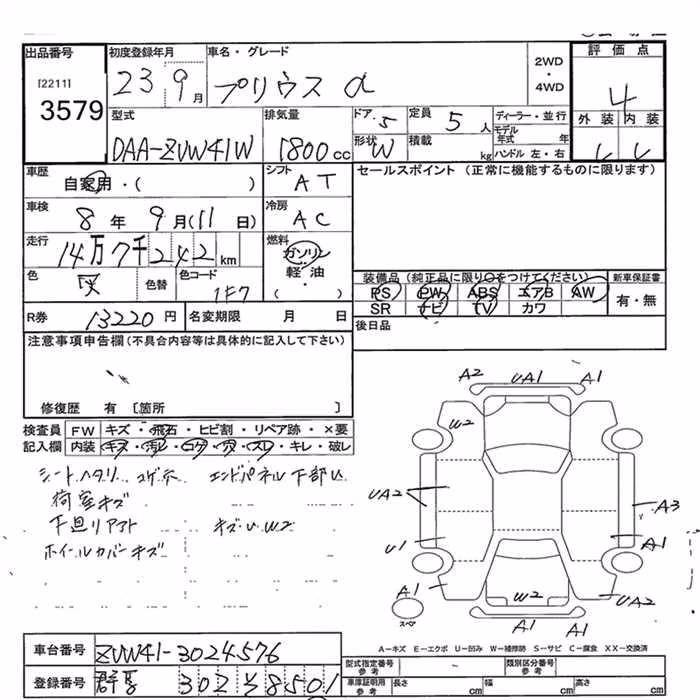 出品番号
[2211]
3579
初度登録年月
23 9月
車名・グレード
プリウス α
2WD
・
4WD
評価点
4
外装 内装
型式
DAA-ZVW41W
排気量
1800cc
ドア 5
形状 W
定員 5人
積載 kg
ディーラー・並行
モデル年式 年
ハンドル 左・右
車歴
自家用・( )
シフト
AT
セールスポイント (正常に機能するものに限ります)
車検
8年 9月(11日)
冷房
AC
走行
14万7千242km
燃料
ガソリン
軽・油
( )
色
色替
色コード
1F7
装備品 (純正品に限り○をつけてください) 新車保証書
PS PW ABS エアB AW 有・無
SR ナビ TV カワ
R券 13220円 名変期限 月 日
後日品
注意事項申告欄 (不具合内容等は具体的に記入して下さい)
修復歴 有 [箇所 ]
検査員 FW キズ・飛石・ヒビ割・リペア跡・×要
記入欄 内装 キズ・汚レ・コゲ・穴・スレ・キレ・破レ
シートヘタリ エンドパネル下部
荷室キズ
下廻リ キズ W2
ホイールカバーキズ
A2 UA1 A1
W2
UA2 A3
U1 A1
A1 W2 UA2
A1 A1
スペア
A－キズ E－エクボ U－凹み W－補修跡 S－サビ C－腐食 XX－交換済
車台番号 ZVW41-3024576
型式指定番号 参考 類別区分番号 参考
登録番号 群馬 302 8501
車庫証明用 参考 長さ cm 幅 cm 高さ cm